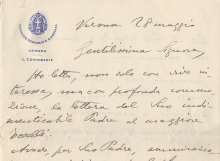 VERONA
IL COMANDANTE
Verona 28 maggio
Gentilissima Signora,
Ho letto, non solo con vivo in
teresse, ma con profonda commo
zione, la lettera del Suo indi
menticabile Padre al maggiore
Avevo, per Suo Padre, ammirazio